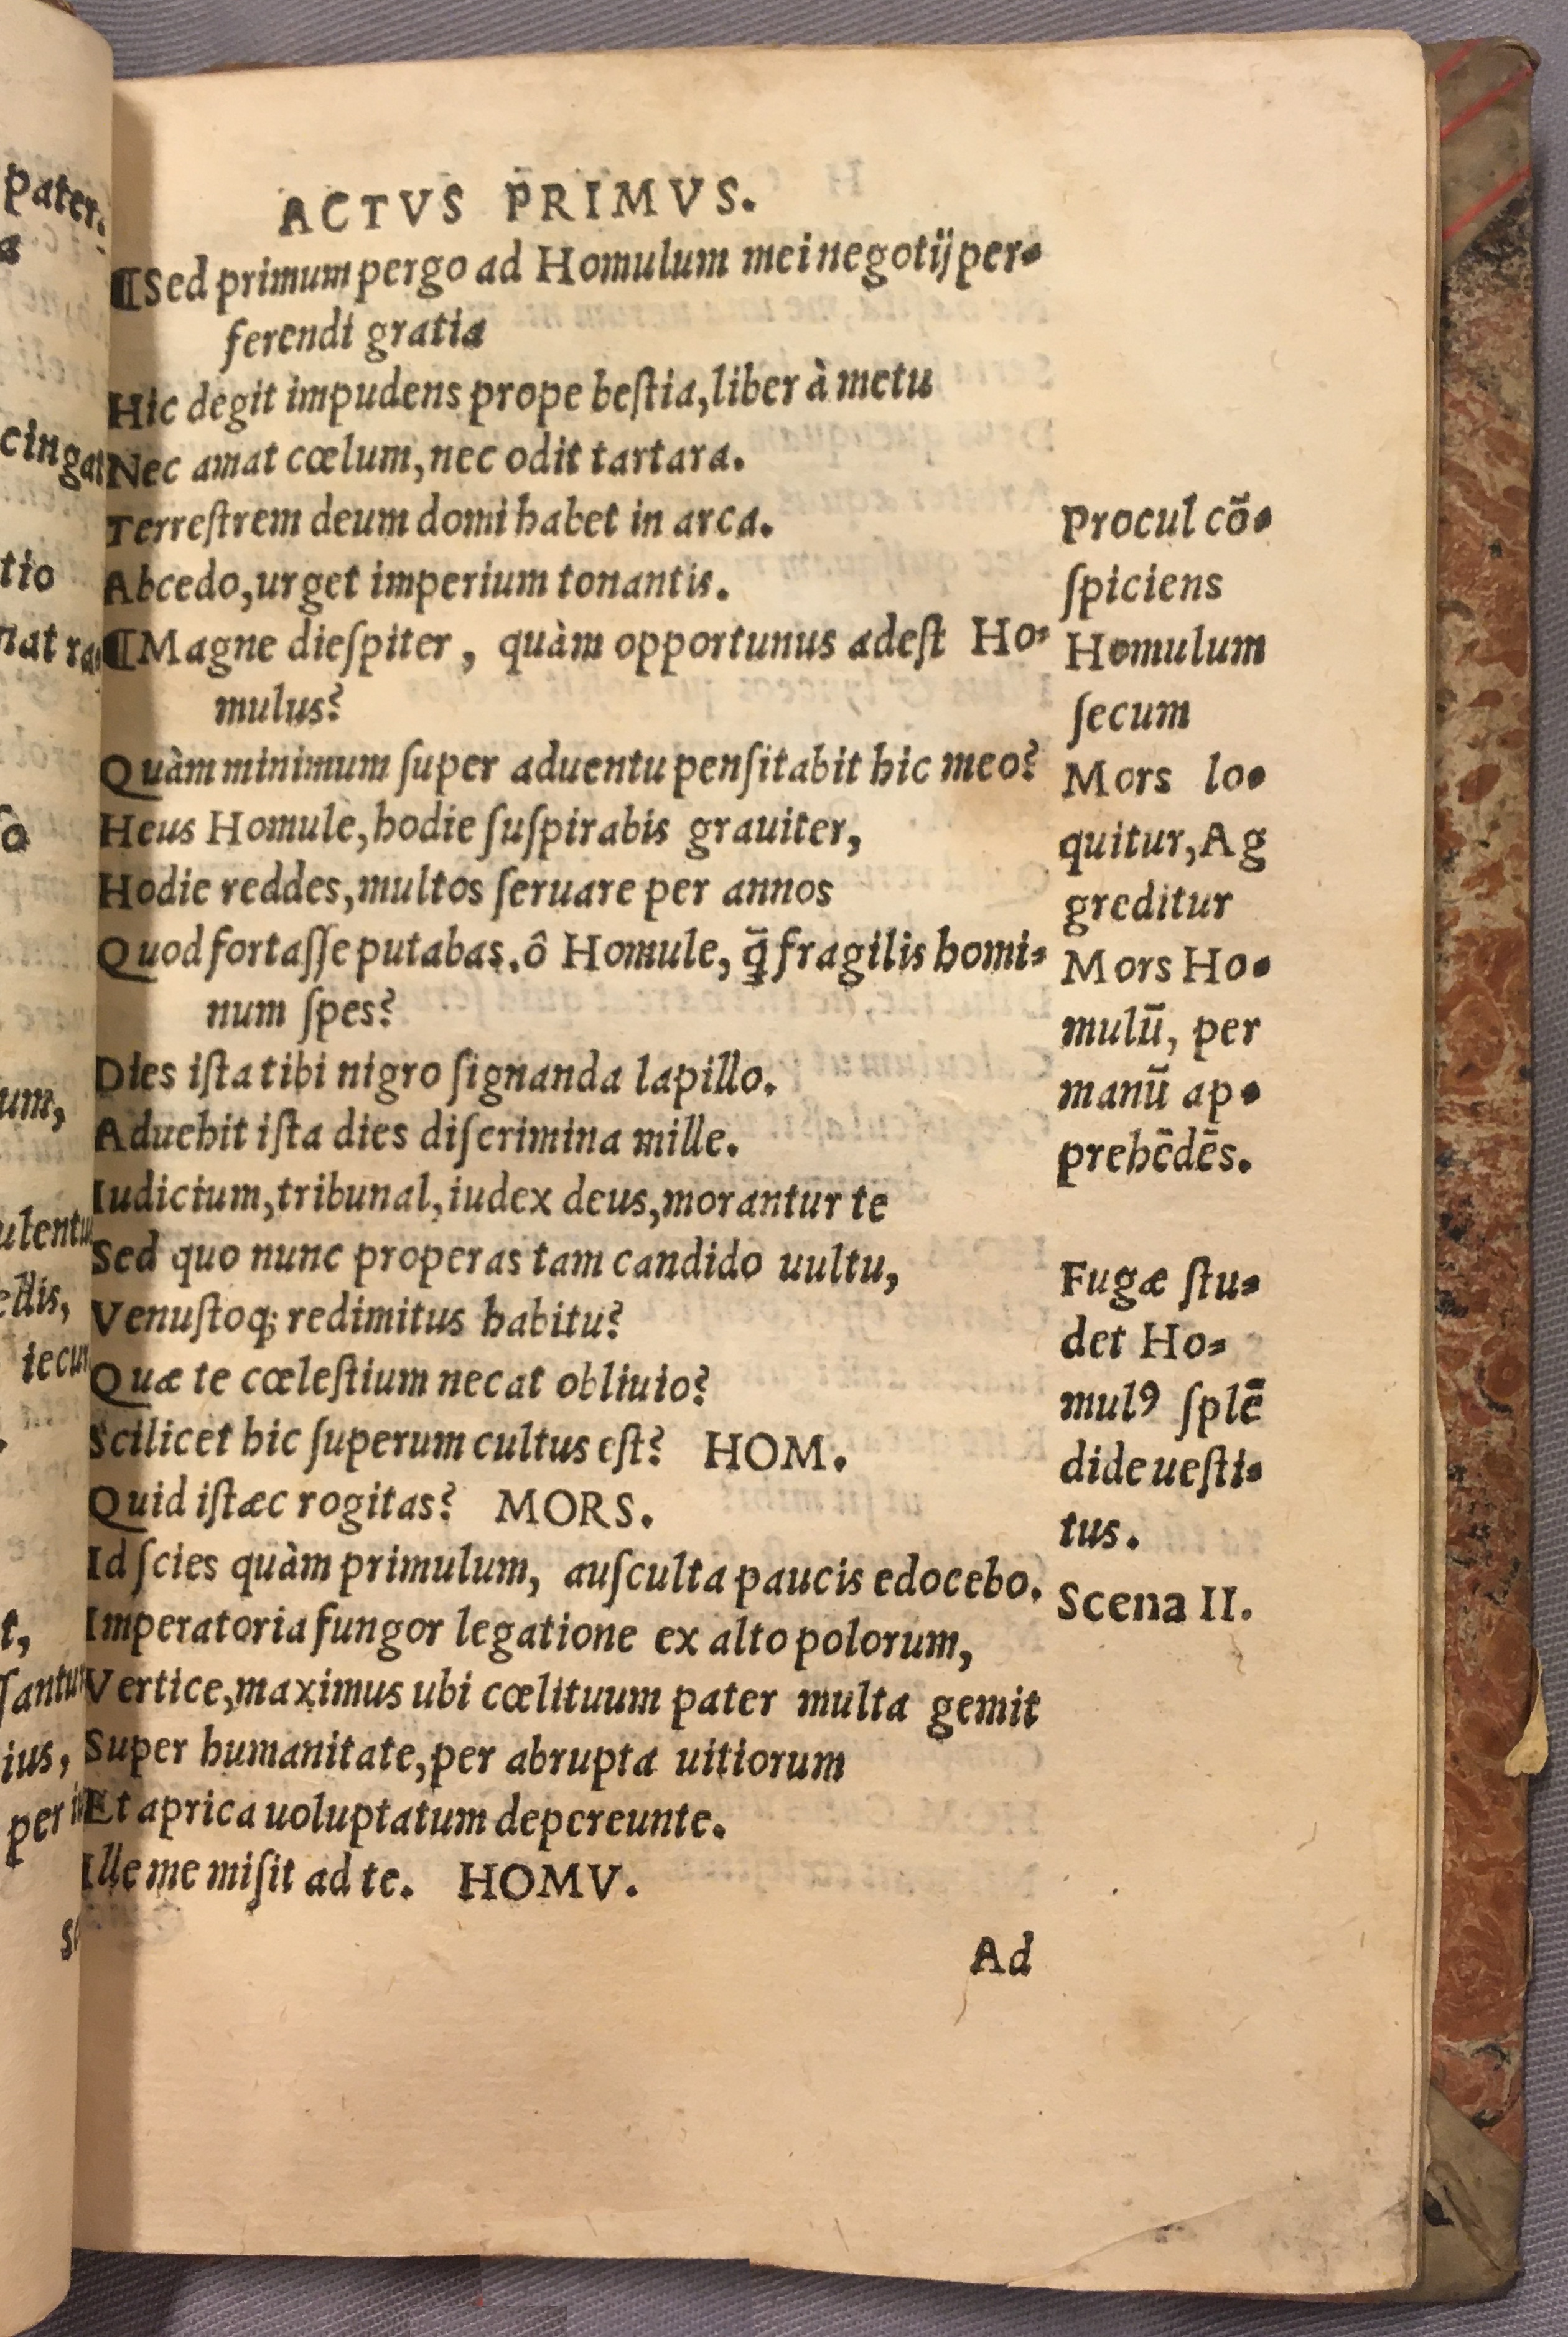 ACTVS PRIMVS.
¶Sed primum pergo ad Homulum mei negotij per-
ferendi gratia
Hic degit impudens prope beſtia, liber à metu
Nec amat cœlum, nec odit tartara.
Terreſtrem deum domi habet in arca.
Abcedo, urget imperium tonantis.
¶Magne dieſpiter, quàm opportunus adeſt Ho-
mulus?
Quàm minimum ſuper aduentu penſitabit hic meo?
Heus Homule, hodie ſuſpirabis grauiter,
Hodie reddes, multos ſeruare per annos
Quod fortaſſe putabas. ô Homule, q̄̃ fragilis homi-
num ſpes?
Dies iſta tibi nigro ſignanda lapillo.
Aduehit iſta dies diſcrimina mille.
Iudicium, tribunal, iudex deus, morantur te
Sed quo nunc properas tam candido uultu,
Venuſtoq; redimitus habitu?
Quæ te cœleſtium necat obliuio?
Scilicet hic ſuperum cultus eſt? HOM.
Quid iſtæc rogitas? MORS.
Id ſcies quàm primulum, auſculta paucis edocebo.
Imperatoria fungor legatione ex alto polorum,
Vertice, maximus ubi cœlituum pater multa gemit
Super humanitate, per abrupta uitiorum
Et aprica uoluptatum depereunte.
Ille me miſit ad te. HOMV.
Ad
Procul cō-
ſpiciens
Homulum
ſecum
Mors lo-
quitur, Ag
greditur
Mors Ho-
mulū, per
manū ap-
prehēdēs.
Fugæ ſtu-
det Ho-
mulꝰ ſplē
dide ueſti-
tus.
Scena II.
pater.
a
cingat
tio
ſo
um,
ellis,
t,
ius,